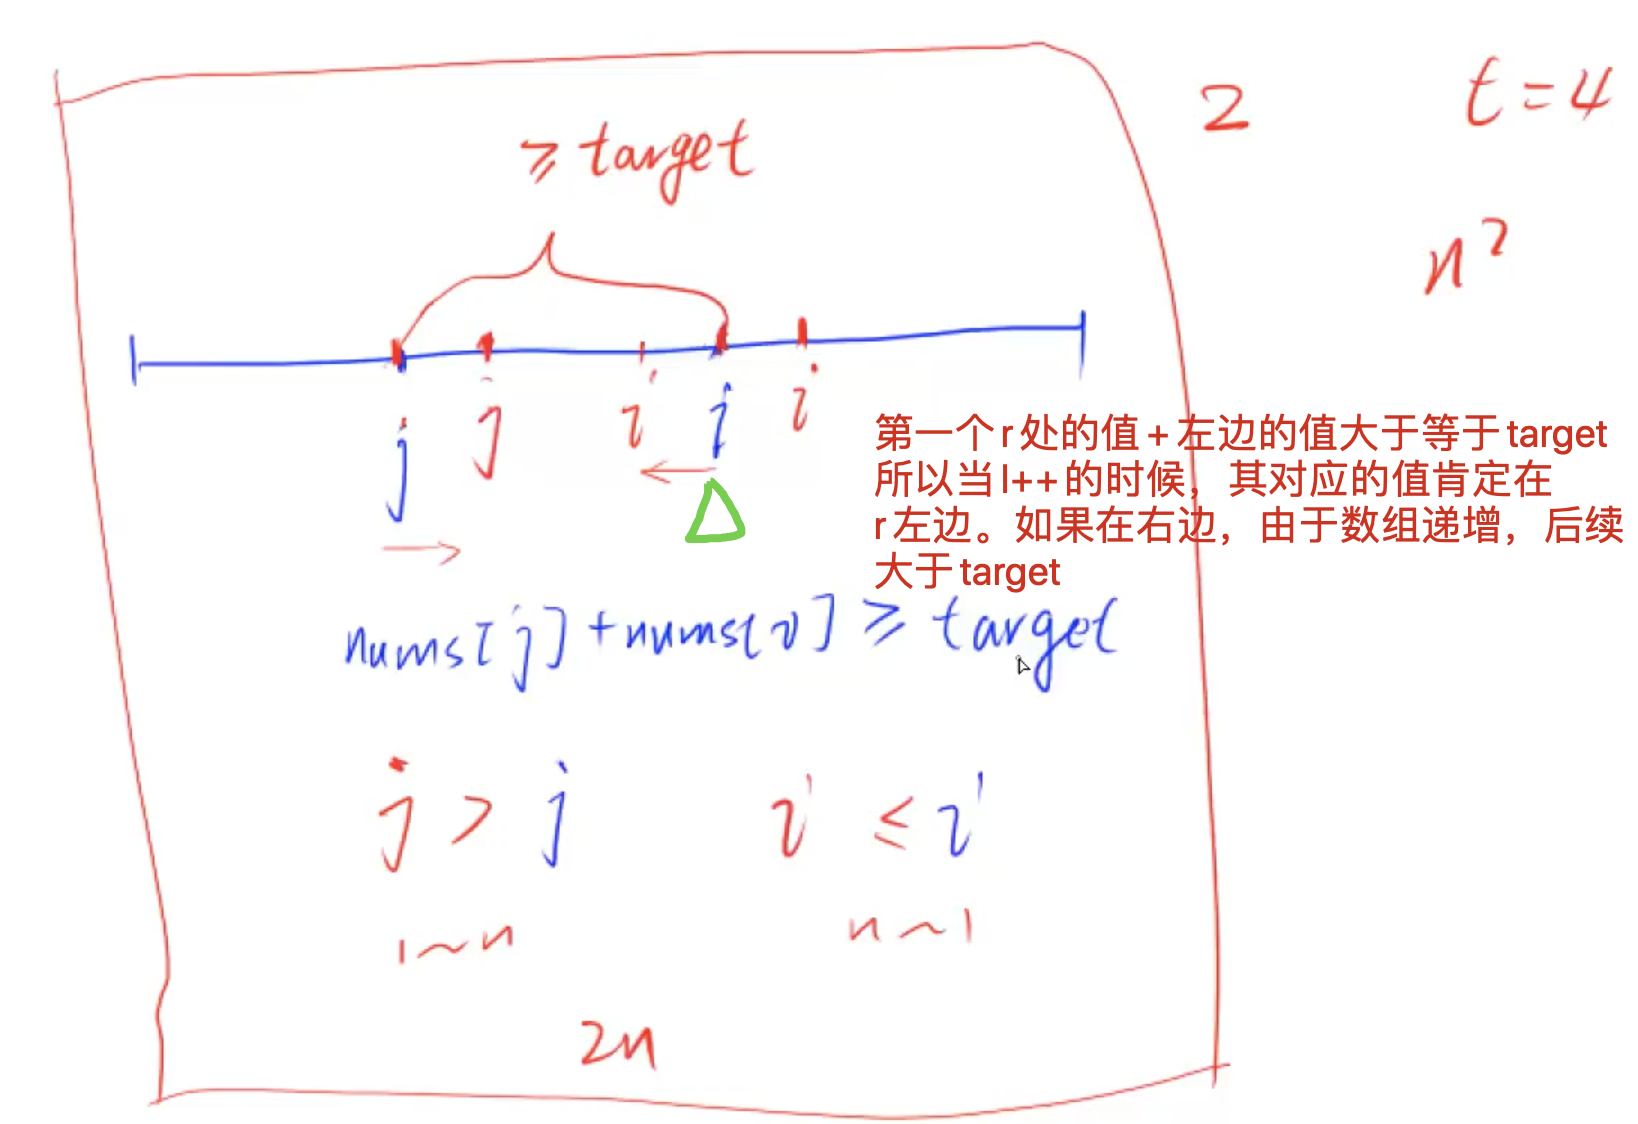 2
t=4
≥ target
n²
j j i i i
第一个r处的值+左边的值大于等于target
所以当l++的时候，其对应的值肯定在
r左边。如果在右边，由于数组递增，后续
大于target
nums[j]+nums[i] ≥ target
j > j i ≤ i
1~n n~1
2n